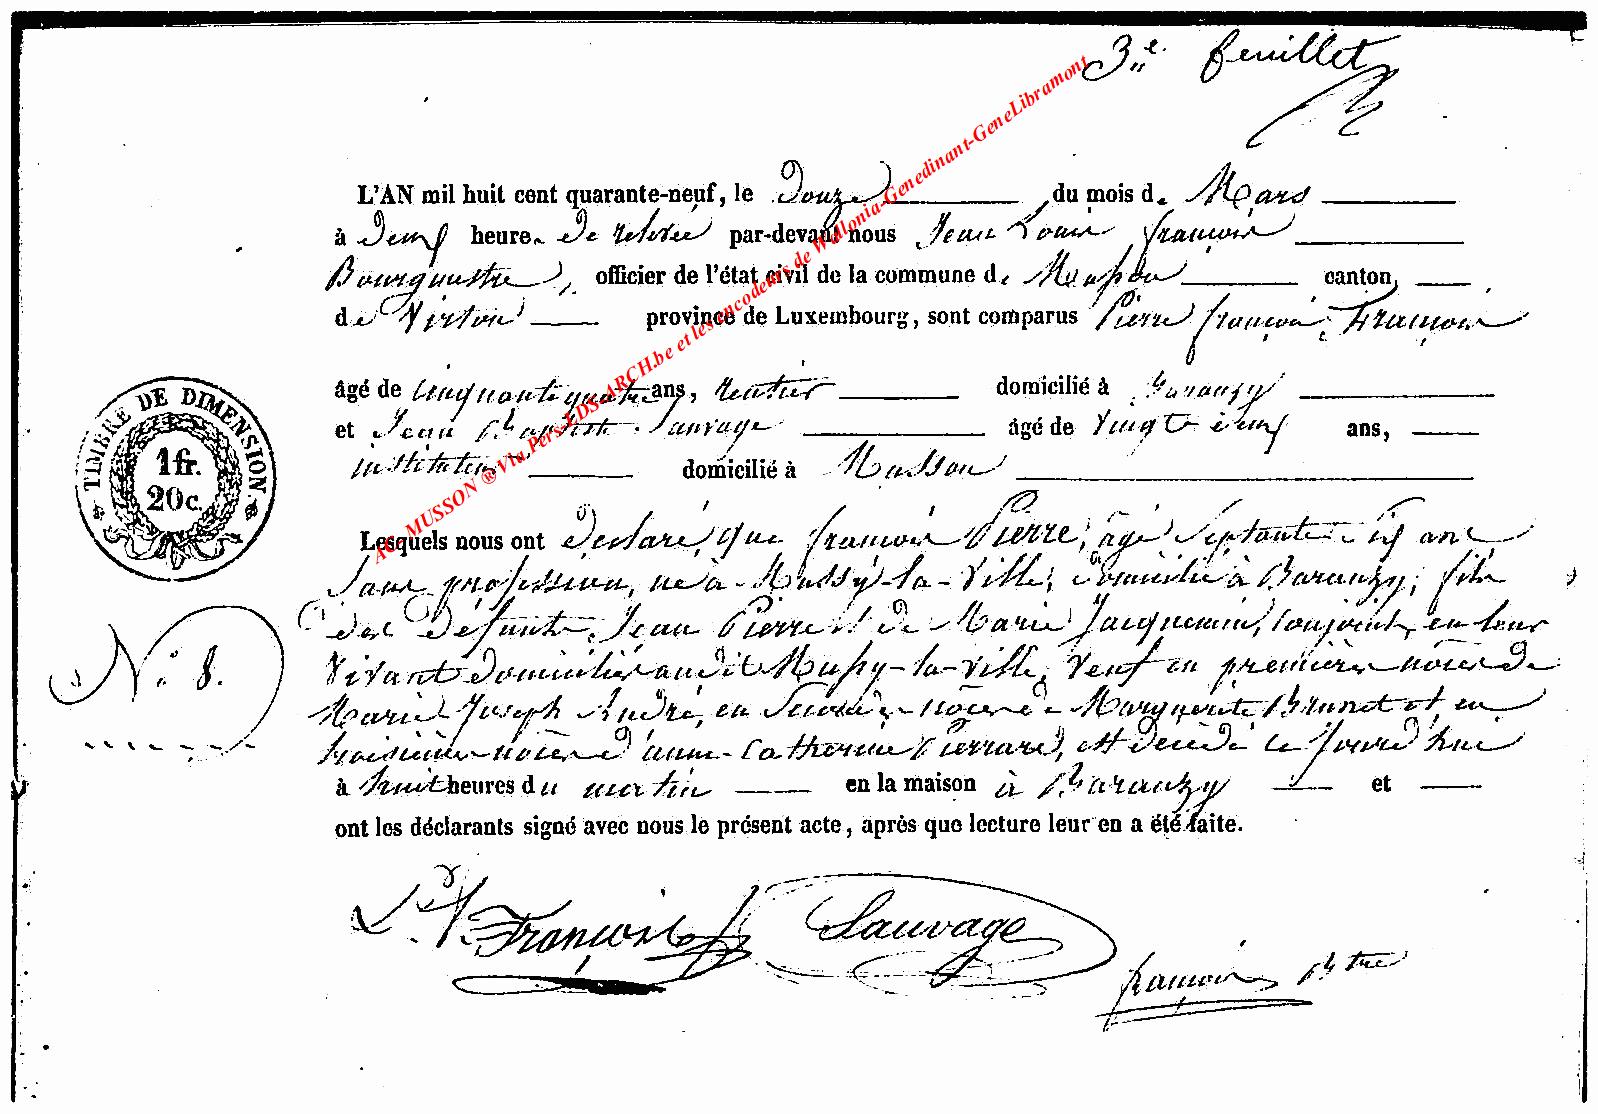 3e. feuillet
L'AN mil huit cent quarante-neuf, le Douze du mois de Mars
à Deux heures De relevée par-devant nous Jean Louis françois
Bourgmestre, officier de l'état civil de la commune de Musson canton
de Virton province de Luxembourg, sont comparus Pierre françois François
âgé de cinquante quatre ans, rentier domicilié à Baranzy
et Jean Baptiste Sauvage âgé de vingt deux ans,
instituteur domicilié à Musson
TIMBRE DE DIMENSION.
1 fr.
20 c.
Lesquels nous ont Déclaré, que françois Pierre, âgé Septante six ans
Sans profession, né à Mussy-la-Ville, Domicilié à Baranzy, fils
des Défunts, Jean Pierre et de Marie Jacquemin, conjoints, en leur
vivant domiciliés au dit Mussy-la-Ville, veuf en premières nôces de
N° 8.
Marie Joseph André, en Secondes nôces de Marguerite Brunet et en
troisièmes nôces d'anne Catherine Pierrard, est décédé ce jourd'hui
à huit heures du matin en la maison à Baranzy et
ont les déclarants signé avec nous le présent acte, après que lecture leur en a été faite.
François Sauvage
françois Btre
AC MUSSON @Via Pers.EDS-ARCH.be et les encodeurs de Wallonia-Genedinant-GeneLibramont